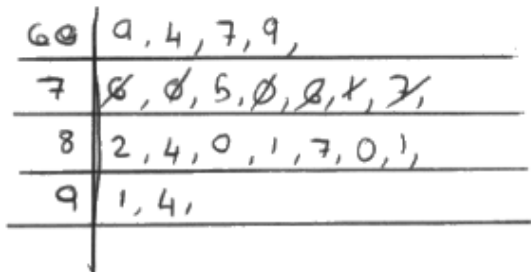 60 | 9, 4, 7, 9,
7 | 6, 0, 5, 0, 8, 1, 7,
8 | 2, 4, 0, 1, 7, 0, 1,
9 | 1, 4,